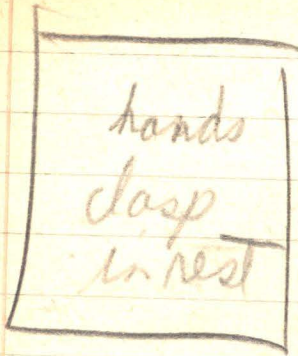 hands
clasp
in rest